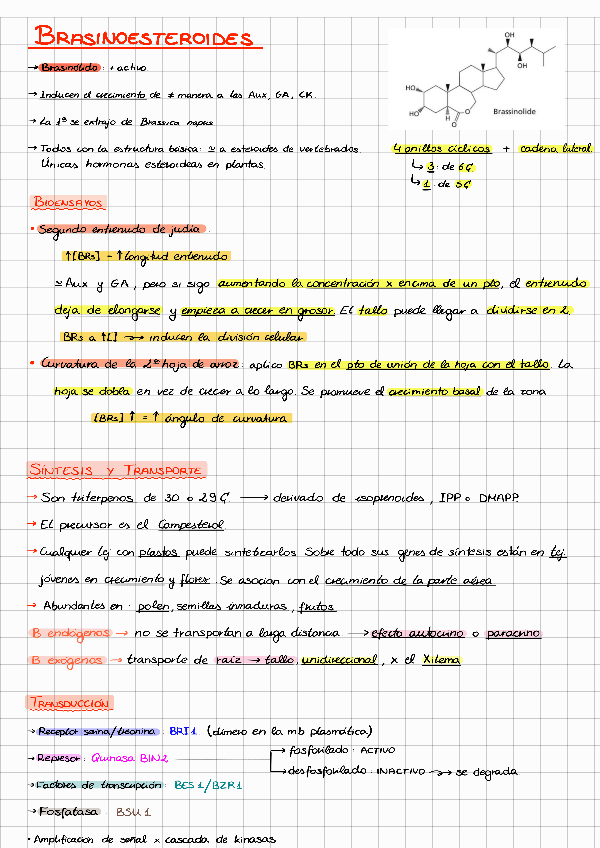 BRASINOESTEROIDES
→ Brasinólido: + activo
→ Inducen el crecimiento de ≠ manera a las Aux, GA, CK.
→ La 1ª se extrajo de Brassica napus
→ Todos con la estructura básica: ≃ a esteroides de vertebrados.
Únicas hormonas esteroideas en plantas.
HO
HO
H
O
O
OH
OH
Brassinolide
4 anillos cíclicos + cadena lateral
↳ 3: de 6C
↳ 1: de 5C
BIOENSAYOS
• Segundo entrenudo de judía:
↑[BRs] - ↑ longitud entrenudo
≃ Aux y GA, pero si sigo aumentando la concentración x encima de un pto, el entrenudo
deja de elongarse y empieza a crecer en grosor. El tallo puede llegar a dividirse en 2.
BRs a ↑[] → inducen la división celular
• Curvatura de la 2ª hoja de arroz: aplico BRs en el pto de unión de la hoja con el tallo. La
hoja se dobla en vez de crecer a lo largo. Se promueve el crecimiento basal de la zona
[BRs] ↑ = ↑ ángulo de curvatura
SÍNTESIS Y TRANSPORTE
→ Son triterpenos de 30 o 29 C → derivado de isoprenoides, IPP o DMAPP.
→ El precursor es el Campesterol
→ Cualquier tej con plastos puede sintetizarlos. Sobre todo sus genes de síntesis están en tej
jóvenes en crecimiento y flores. Se asocian con el crecimiento de la parte aérea
→ Abundantes en: polen, semillas inmaduras, frutos
B endógenos → no se transportan a larga distancia → efecto autocrino o paracrino
B exógenos → transporte de raíz → tallo, unidireccional, x el Xilema
TRANSDUCCIÓN
→ Receptor serina/treonina: BRI1 (dímero en la mb plasmática)
→ Represor: Quinasa BIN2
→ fosforilado: ACTIVO
→ desfosforilado: INACTIVO → se degrada
→ Factores de transcripción: BES1/BZR1
→ Fosfatasa: BSU1
• Amplificación de señal x cascada de kinasas